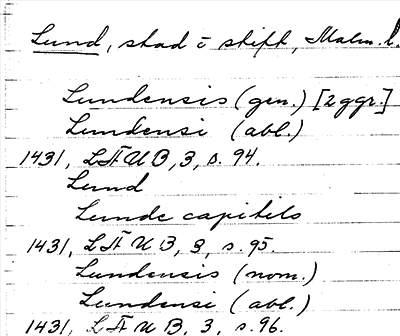 Lund, stad o stift, Malm. l.
Lundensis (gen.) [2 ggr.]
Lundensi (abl.)
1431, LÄUB, 3, s. 94.
Lund
Lunde capitels
1431, LÄUB, 3, s. 95.
Lundensis (nom.)
Lundensi (abl.)
1431, LÄUB, 3, s. 96.